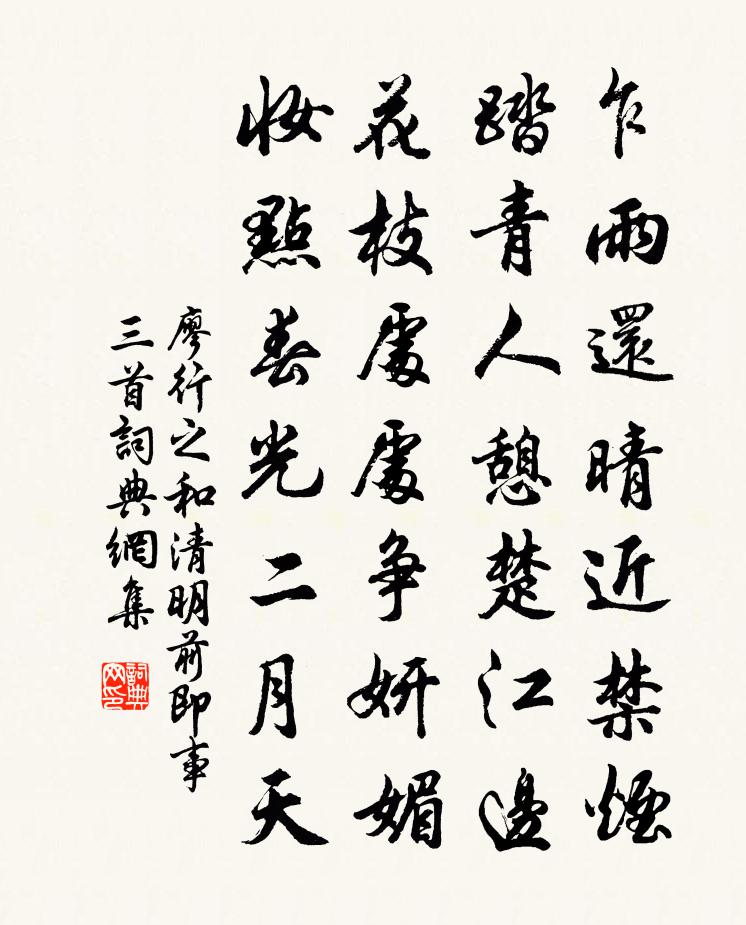 乍雨還晴近禁煙
踏青人憩楚江邊
花枝處處争妍媚
妝點春光二月天
廖行之和清明前即事
三首詞典網集
詞典網印